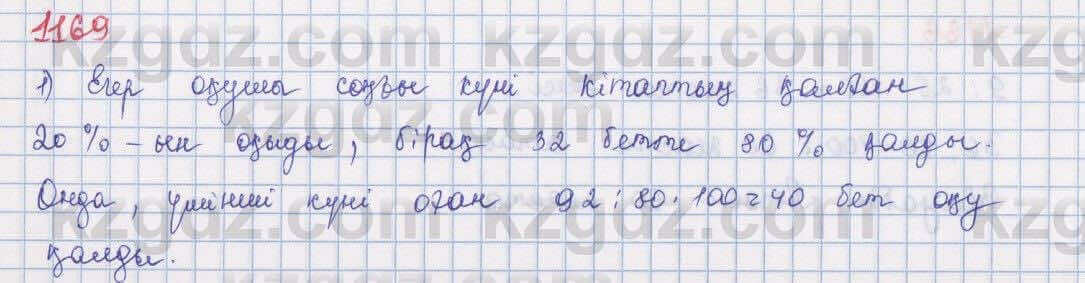 1169
1) Егер оқушы соңғы күні кітаптың қалған
20 % - ын оқыды, бірақ 32 бетте 80 % қалды.
Онда, үшінші күні оған 92 : 80 · 100 = 40 бет оқу
қалды.